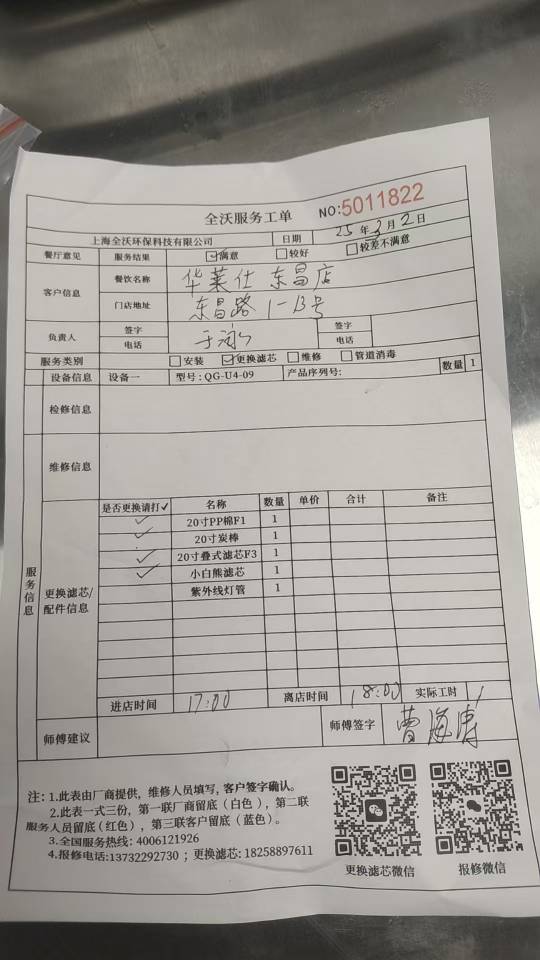 全沃服务工单
NO:5011822
上海全沃环保科技有限公司 日期 25年3月2日
餐厅意见 服务结果 ☑满意 □较好 □较差不满意
客户信息 餐饮名称 华莱仕 东昌店
门店地址 东昌路1-13号
负责人 签字 签字
电话 电话
服务类别 □安装 ☑更换滤芯 □维修 □管道消毒
设备信息 设备一 型号:QG-U4-09 产品序列号: 数量 1
检修信息
维修信息
服务信息
更换滤芯/配件信息
是否更换请打✓ 名称 数量 单价 合计 备注
✓ 20寸PP棉F1 1
✓ 20寸炭棒 1
✓ 20寸叠式滤芯F3 1
✓ 小白熊滤芯 1
紫外线灯管 1
进店时间 17:00 离店时间 18:00 实际工时 1
师傅建议 师傅签字 曹海涛
注: 1.此表由厂商提供, 维修人员填写, 客户签字确认。
2.此表一式三份, 第一联厂商留底(白色), 第二联
服务人员留底(红色), 第三联客户留底(蓝色)。
3.全国服务热线: 4006121926
4.报修电话:13732292730 ; 更换滤芯: 18258897611
更换滤芯微信 报修微信